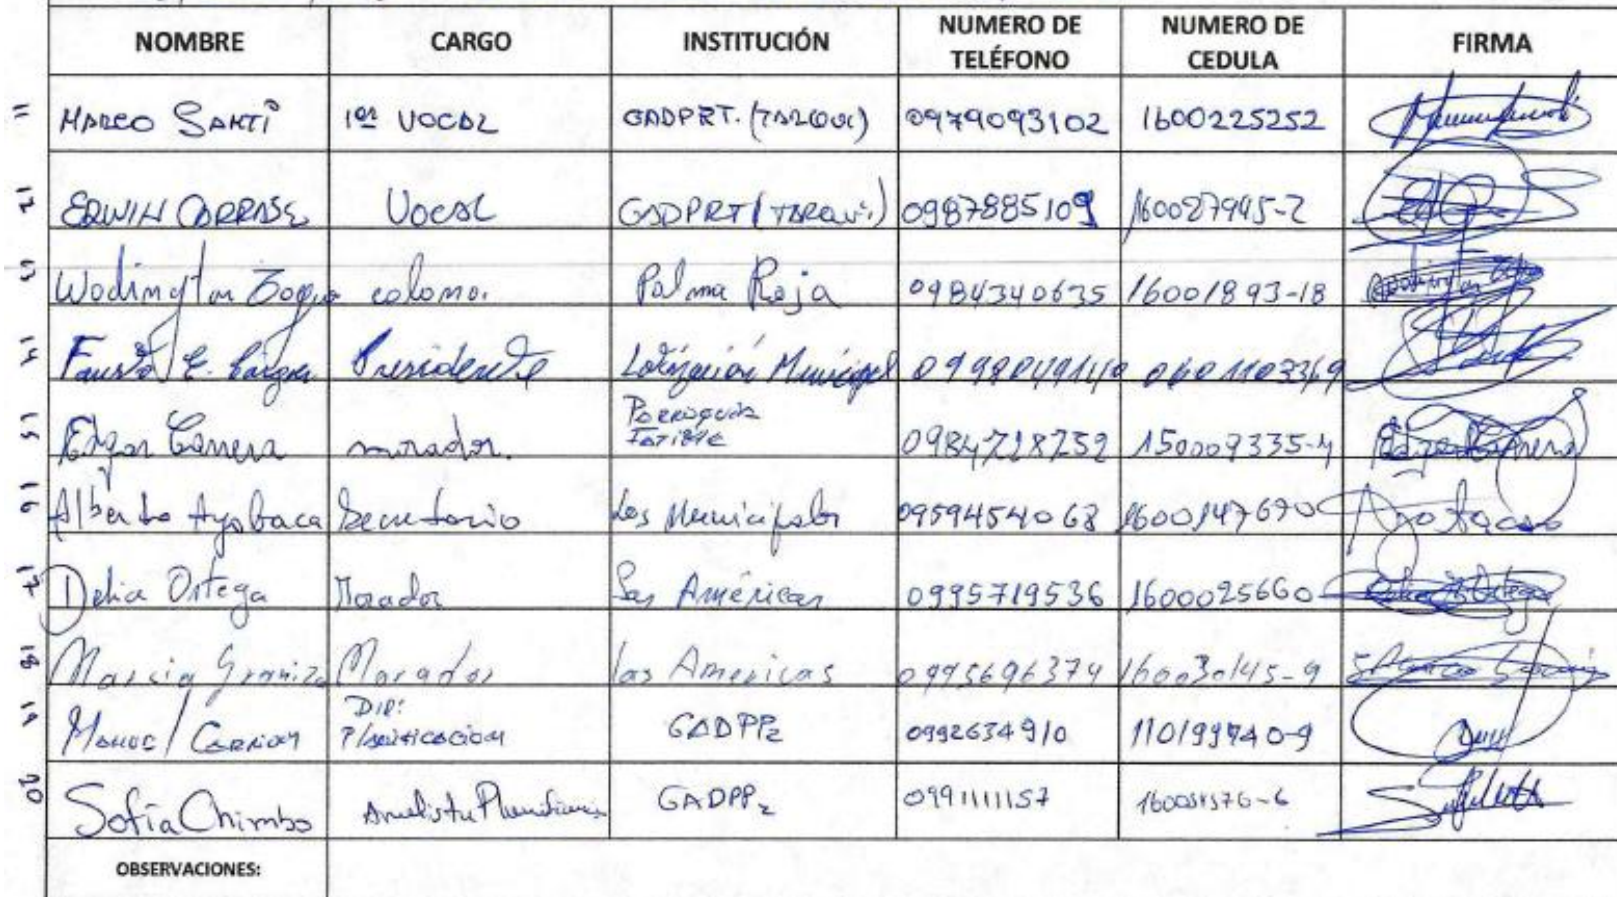 NOMBRE CARGO INSTITUCIÓN NUMERO DE TELÉFONO NUMERO DE CEDULA FIRMA
11 MARCO SANTI 1er VOCAL GADPRT. (TARQUI) 0979093102 1600225252
12 ERWIN VOCAL GADPRT (TARQUI) 0987885109 160027945-2
13 Wodington colono. Palma Roja 0984340635 16001893-18
14 Fausto E. Presidente Lotización Municipal
15 Edgar Carrera morador. Parroquia 0984728752 150009335-4 Edgar Carrera
16 Alberto Ayabaca Secretario Los Municipales 0959454068 1600147670
17 Delia Ortega Morador Las Américas 0995719536 1600025660
18 Marcia Granizo Morador las Americas 0995696374 160030145-9
19 Manuel Carrion DIR: Planificación GADPPz 0992634910 110199940-9
20 Sofía Chimbo Analista GADPPz 0991111157
OBSERVACIONES: